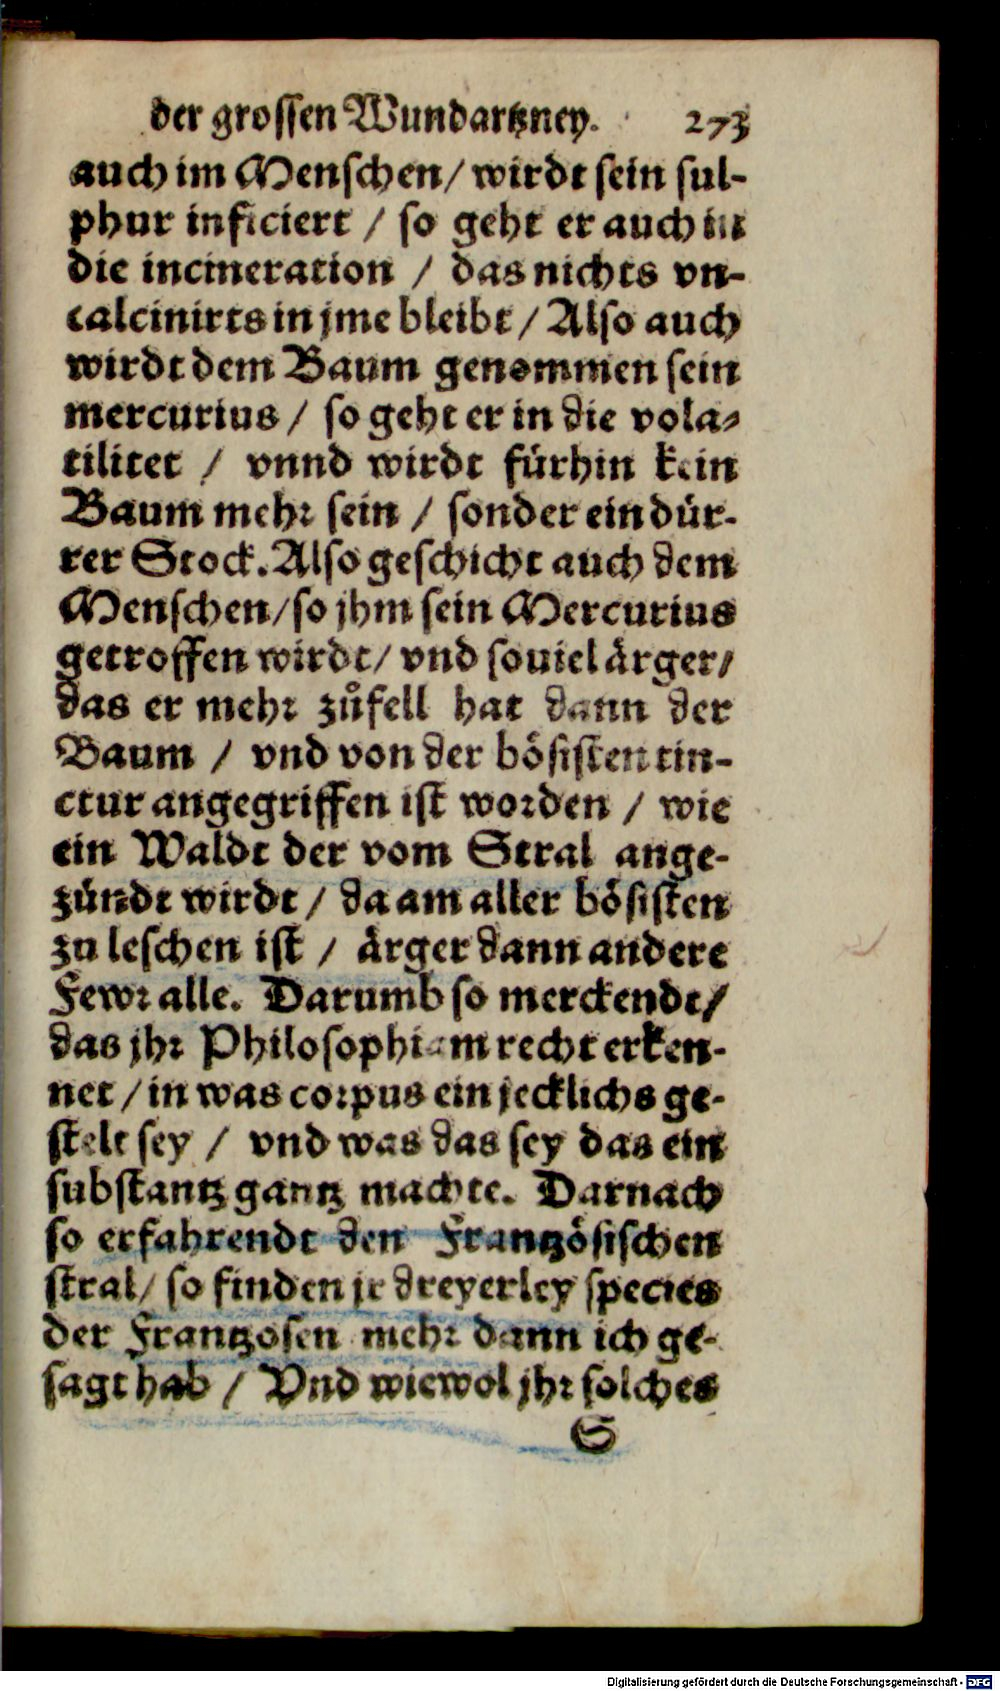 der grossen Wundartzney. 273
auch im Menschen/ wirdt sein sul-
phur inficiert / so geht er auch in
die incineration / das nichts vn-
calcinirts in jme bleibt / Also auch
wirdt dem Baum genommen sein
mercurius / so geht er in die vola-
tilitet / vnnd wirdt fürhin kein
Baum mehr sein / sonder ein dür-
rer Stock. Also geschicht auch dem
Menschen/ so jhm sein Mercurius
getroffen wirdt/ vnd souiel ärger/
das er mehr zůfell hat dann der
Baum / vnd von der bösisten tin-
ctur angegriffen ist worden / wie
ein Waldt der vom Stral ange-
zündt wirdt / da am aller bösisten
zu leschen ist / ärger dann andere
Fewr alle. Darumb so merckendt/
das jhr Philosophiam recht erken-
net / in was corpus ein jecklichs ge-
stelt sey / vnd was das sey das ein
substantz gantz machte. Darnach
so erfahrendt den Frantzösischen
stral/ so finden jr dreyerley species
der Frantzosen mehr dann ich ge-
sagt hab / Vnd wiewol jhr solches
S
Digitalisierung gefördert durch die Deutsche Forschungsgemeinschaft - DFG